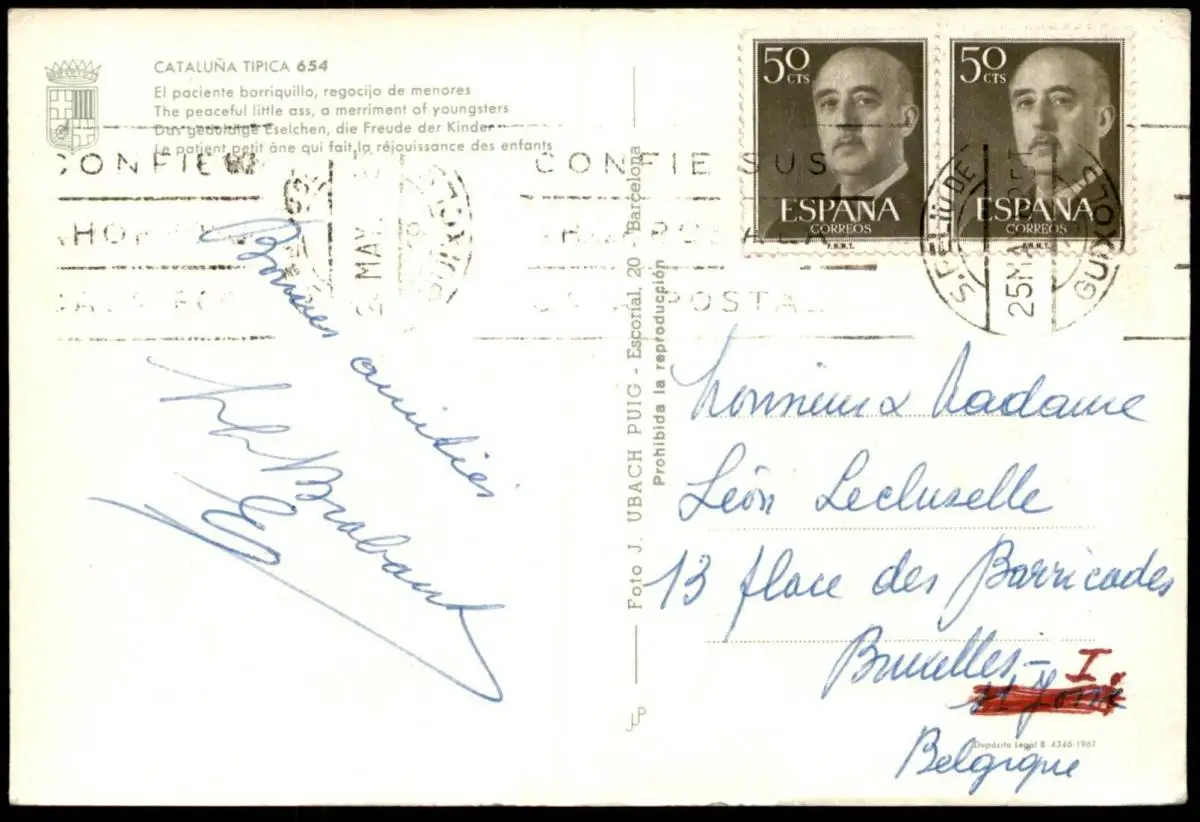 CATALUÑA TIPICA 654
El paciente borriquillo, regocijo de menores
The peaceful little ass, a merriment of youngsters
Das geduldige Eselchen, die Freude der Kinder
Le patient petit âne qui fait la réjouissance des enfants
50 CTS
ESPAÑA
CORREOS
F.N.M.T.
50 CTS
ESPAÑA
CORREOS
F.N.M.T.
CONFIE SUS
POSTAL
S. FELIU DE
GUIXOLS
25 MA
MAY
Bonnes amitiés
Brabant
Foto J. UBACH PUIG - Escorial, 20 - Barcelona
Prohibida la reproducción
Monsieur & Madame
Léon Lecluselle
13 place des Barricades
Bruxelles - I.
Belgique
Depósito Legal B. 4346-1961